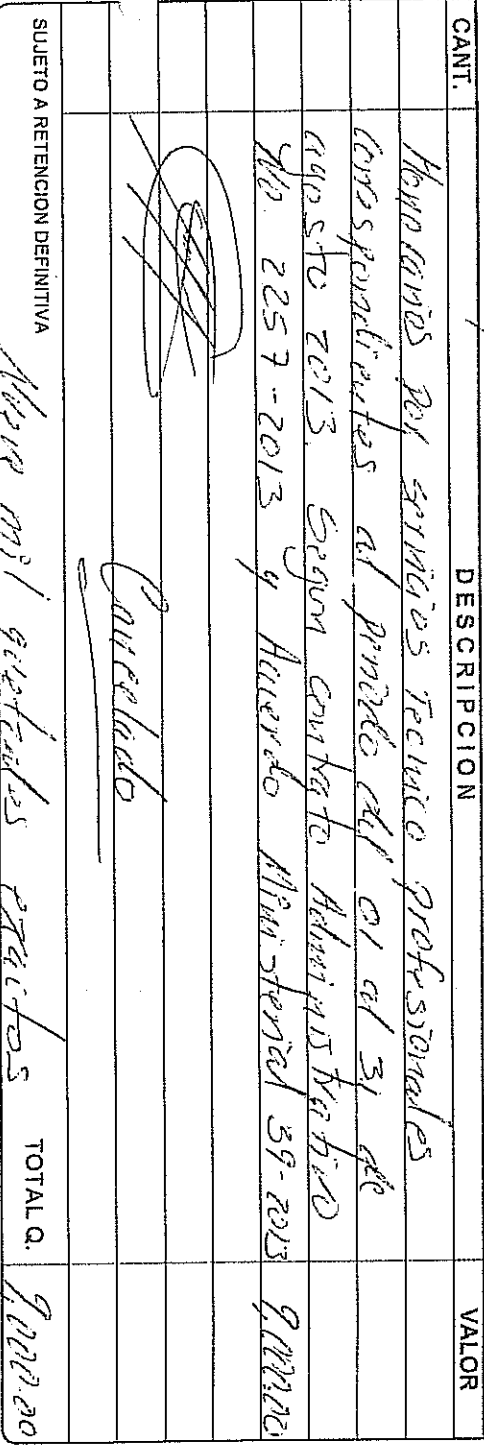 CANT. DESCRIPCION VALOR
Honorarios por servicios Tecnico Profesionales
correspondientes al periodo del 01 al 31 de
agosto 2013. Segun contrato Administrativo
No. 2257-2013 y Acuerdo Ministerial 39-2013 9,000.00
Cancelado
SUJETO A RETENCION DEFINITIVA Nueve mil quetzales exactos TOTAL Q. 9,000.00